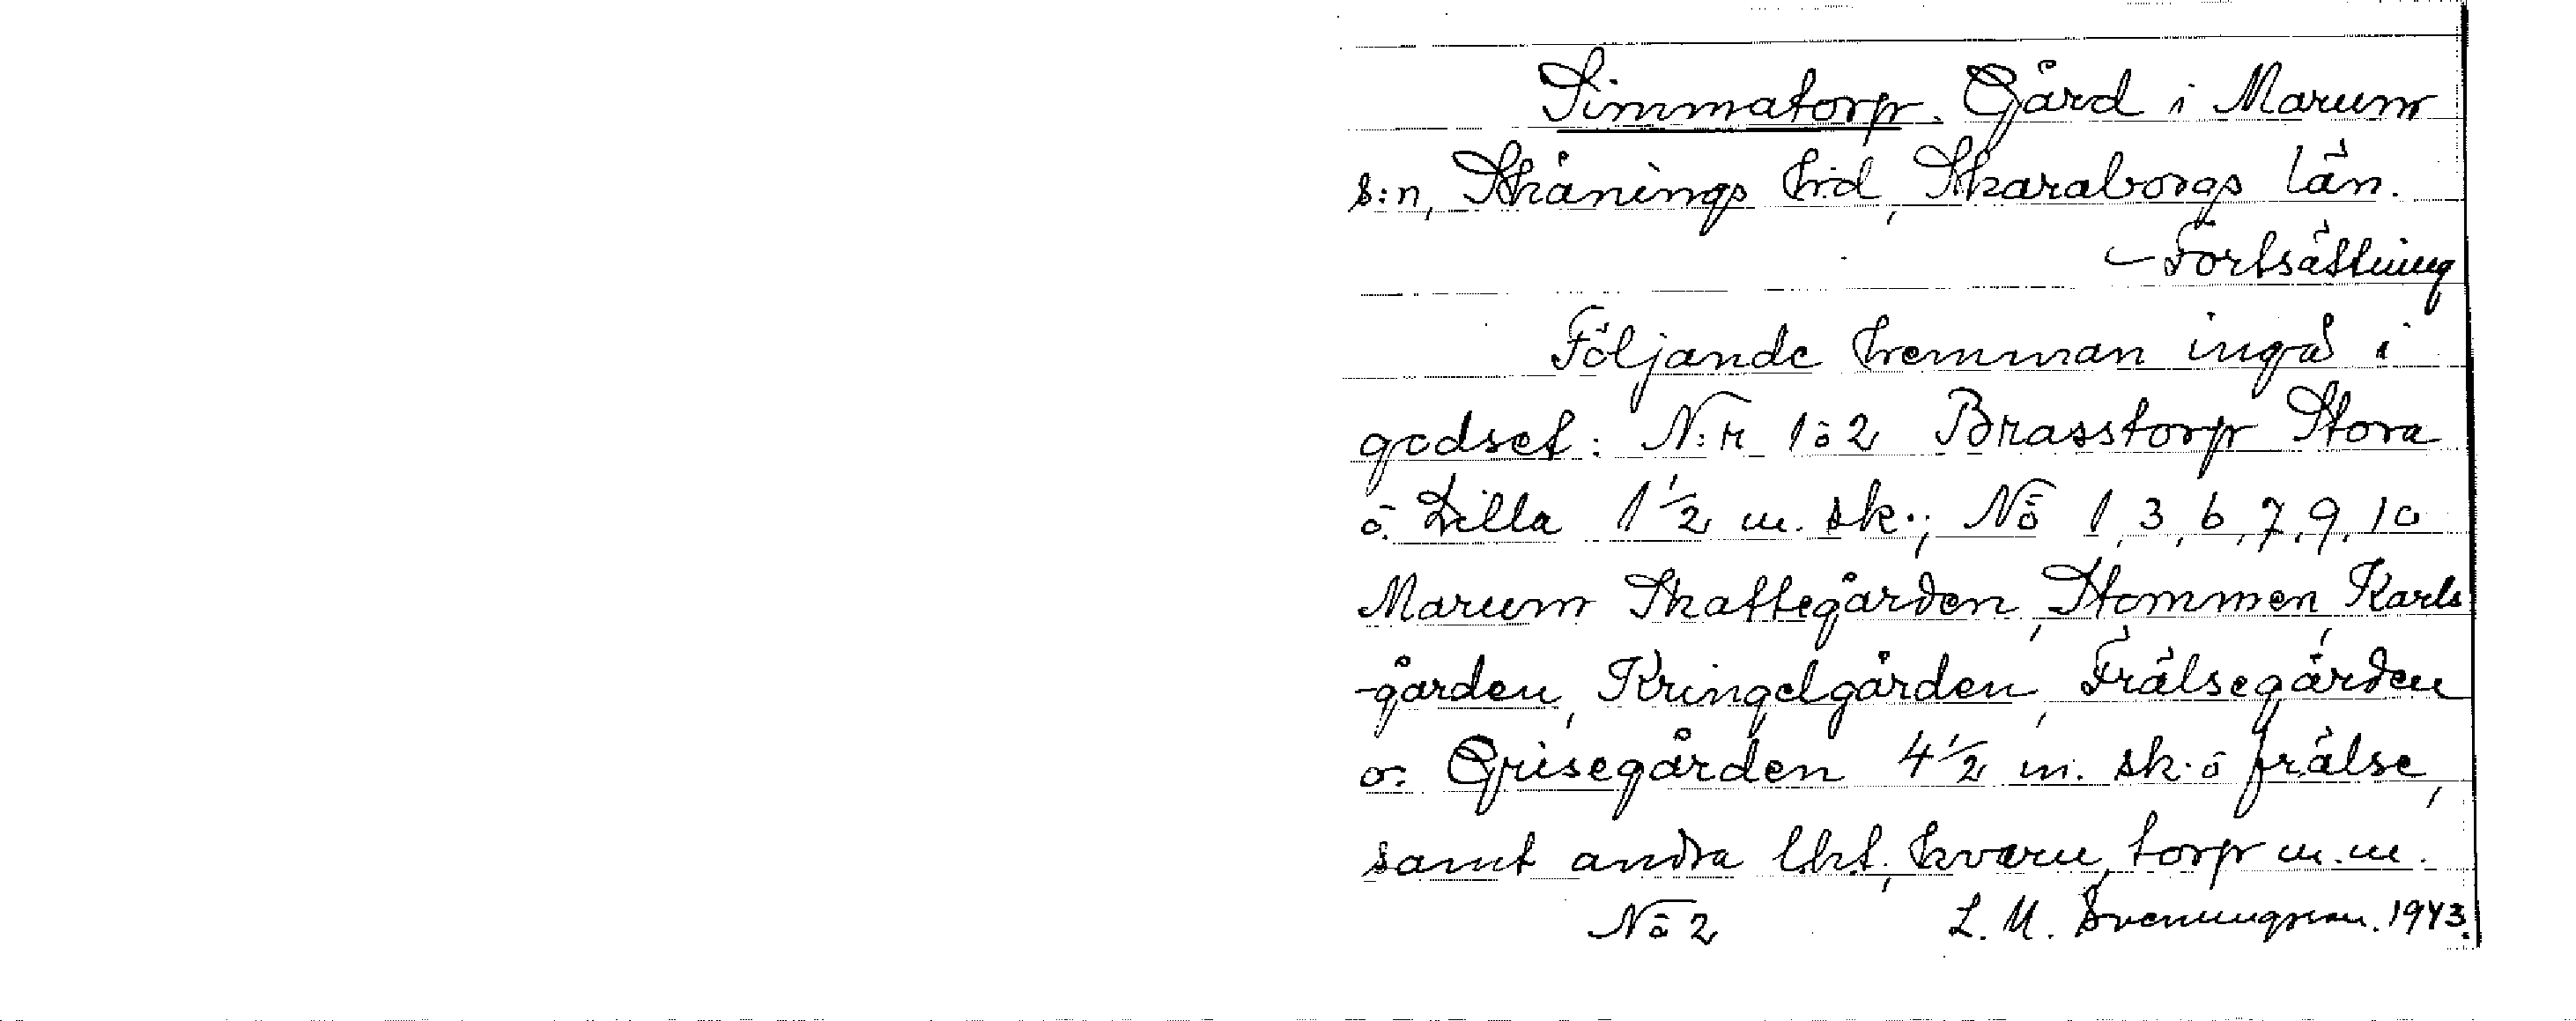 Simmatorp. Gård i Marum
s:n, Skånings h:d, Skaraborgs län.
– Fortsättning
Följande hemman ingå i
godset: N:r 1 o 2 Brasstorp Stora
o. Lilla 1 1/2 m. sk.; No 1, 3, 6, 7, 9, 10
Marum Skattegården, Stommen, Karls
-gården, Kringelgården, Frälsegården
o. Grisegården 4 1/2 m. sk. o frälse,
samt andra lht., kvarn, torp m.m.
No 2 L. M. Svenungsson. 1943.